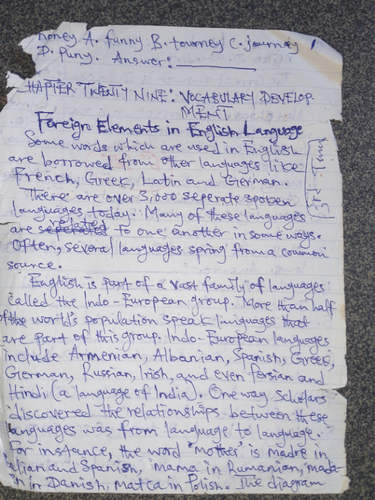 honey. A. funny B. tourney C. journey
D. Puny. Answer: ________
CHAPTER TWENTY NINE: VOCABULARY DEVELOP
MENT
Foreign Elements in English Language
Some words which are used in English
are borrowed from other languages like
French, Greek, Latin and German.
There are over 3,000 seperate spoken
languages today. Many of these languages
are related to one another in some ways.
Often, several languages spring from a common
source.
English is part of a vast family of languages
called the Indo-European group. More than half
of the world's population speak languages that
are part of this group. Indo-European languages
include Armenian, Albanian, Spanish, Greek,
German, Russian, Irish, and even Persian and
Hindi (a language of India). One way Scholars
discovered the relationships between these
languages was from language to language.
For instance, the word "mother" is madre in
Italian and Spanish, mama in Rumanian, mada-
in Danish, matca in Polish. The diagram